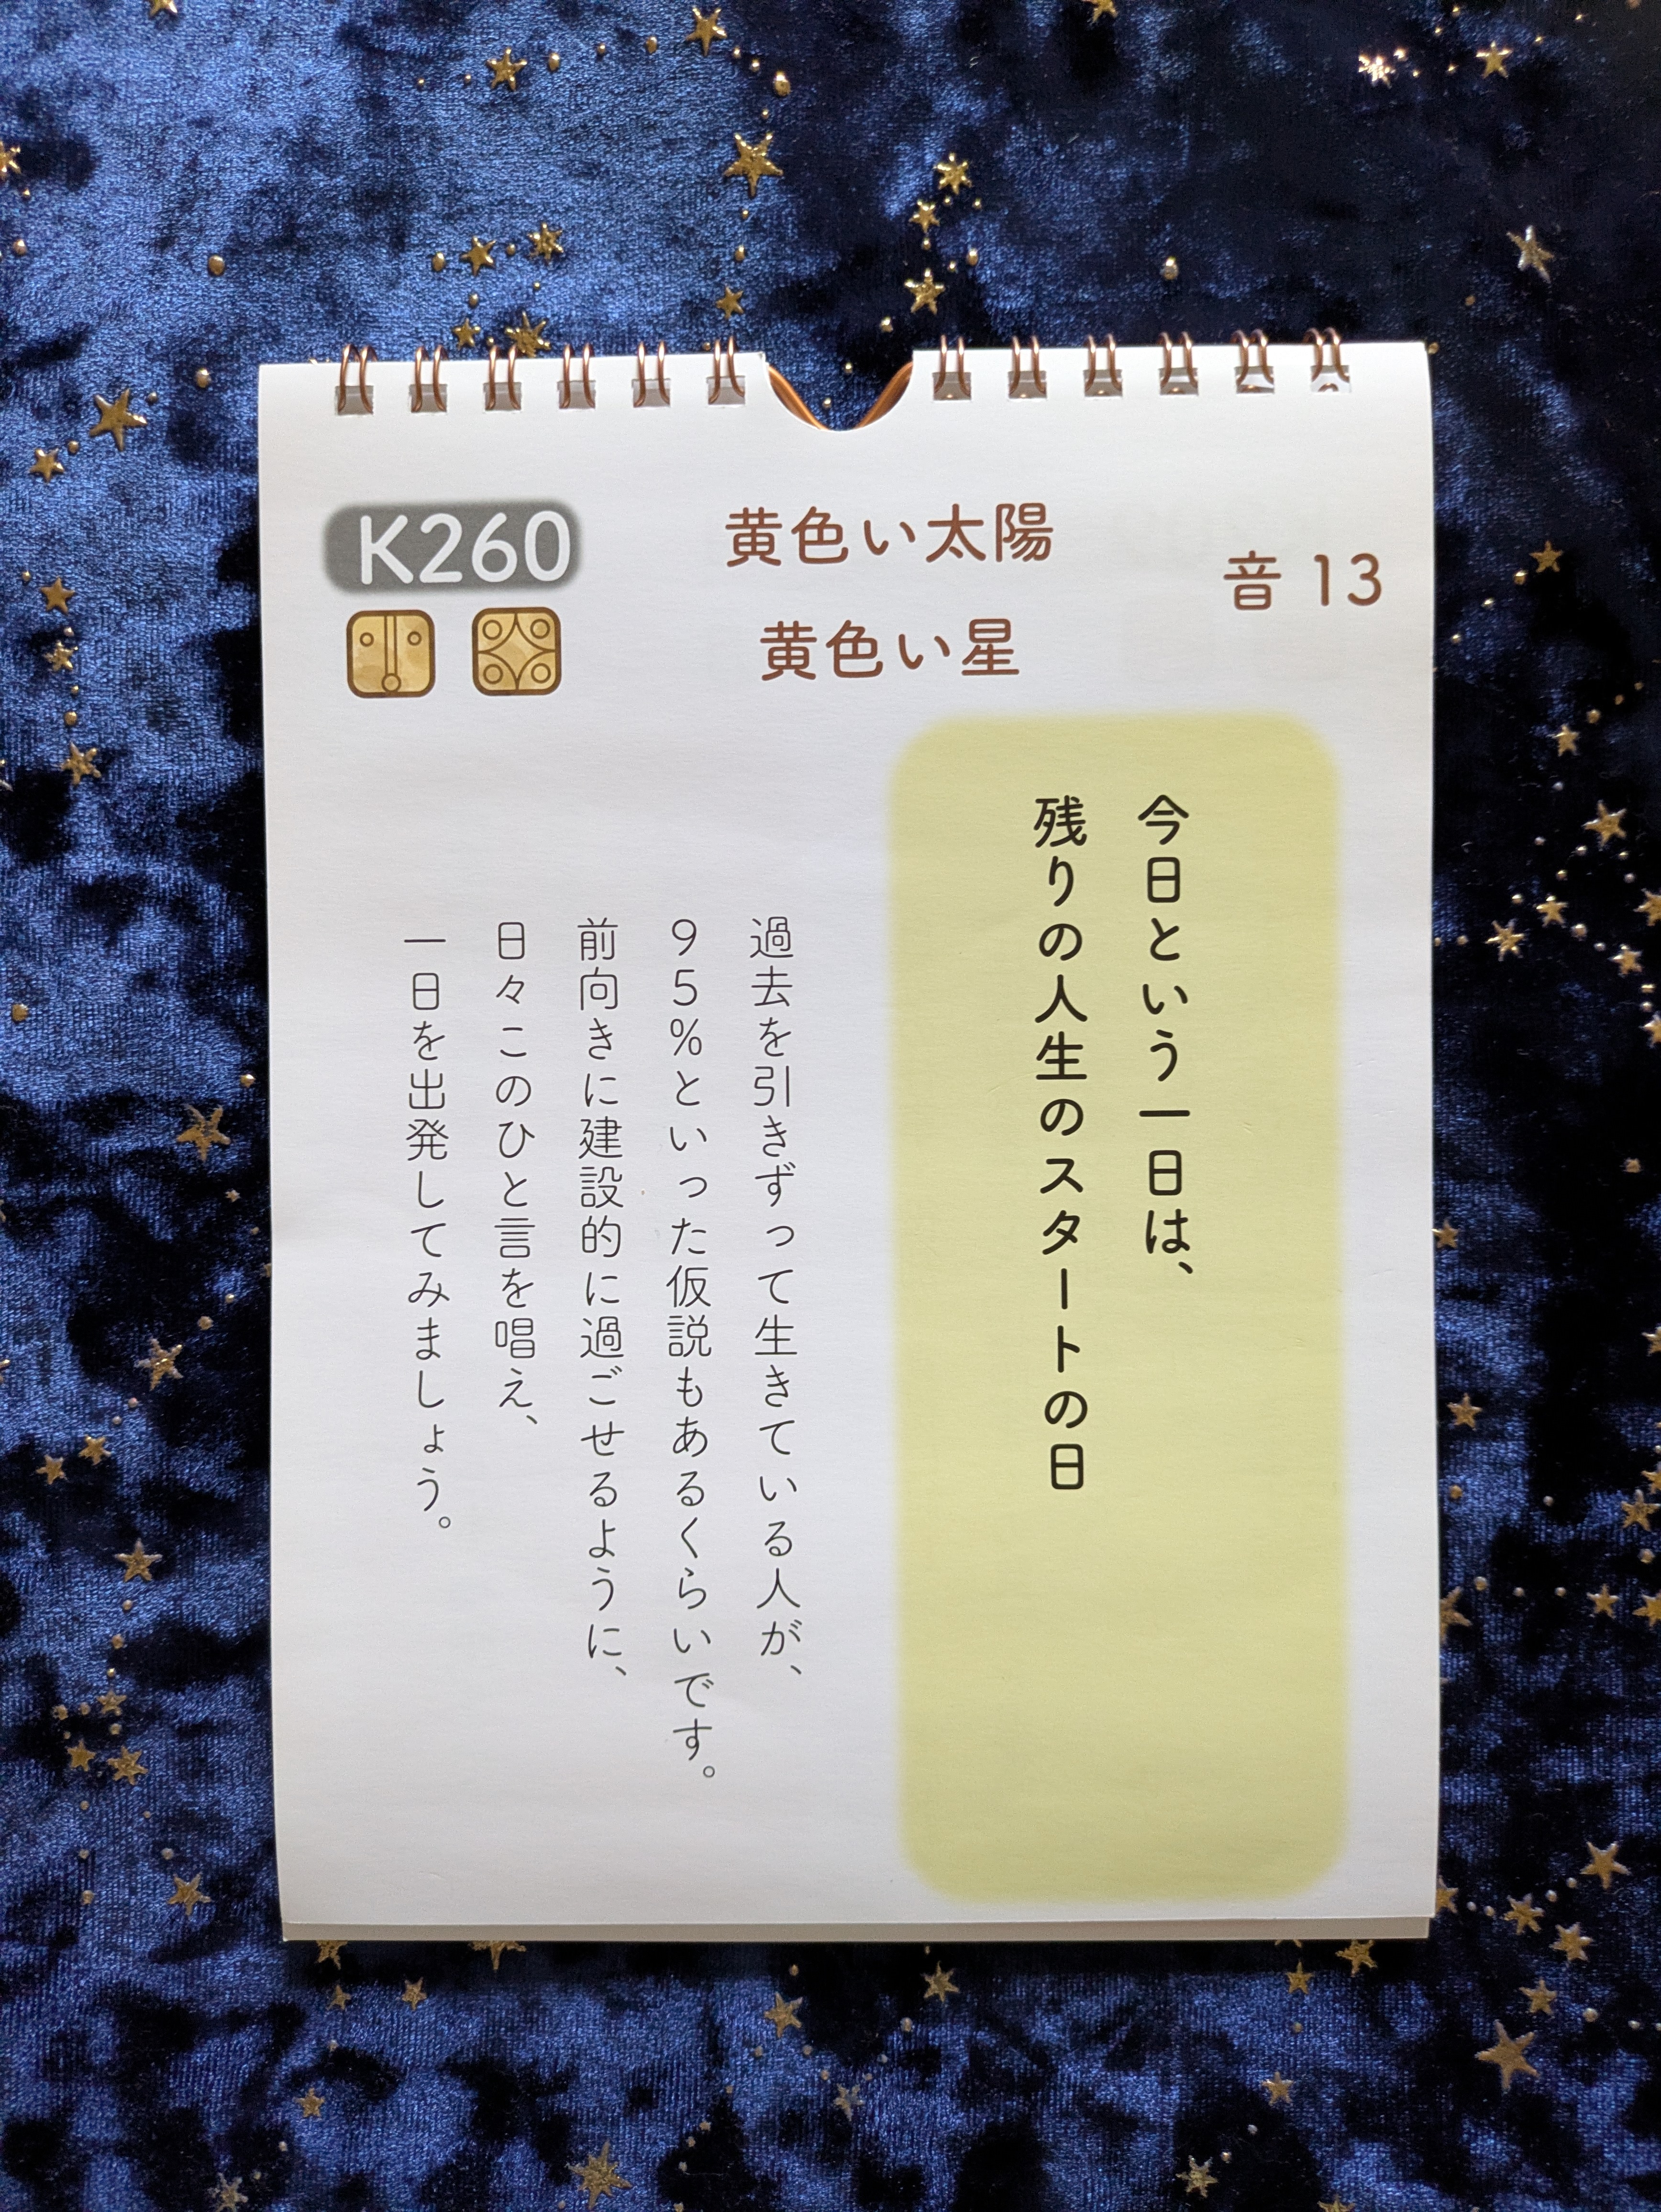 K260
黄色い太陽
黄色い星
音 13
今日という一日は、
残りの人生のスタートの日
過去を引きずって生きている人が、
95%といった仮説もあるくらいです。
前向きに建設的に過ごせるように、
日々このひと言を唱え、
一日を出発してみましょう。